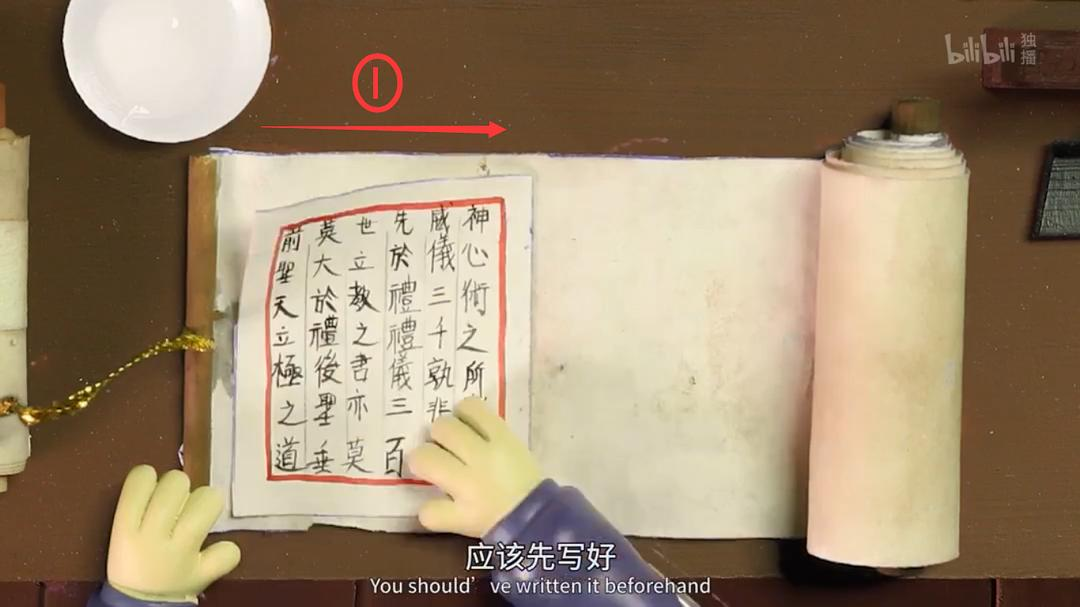 bilibili 独播
①
前聖天立極之道
莫大於禮後聖垂
世立教之書亦莫
先於禮禮儀三百
威儀三千孰非
神心術之所
应该先写好
You should've written it beforehand